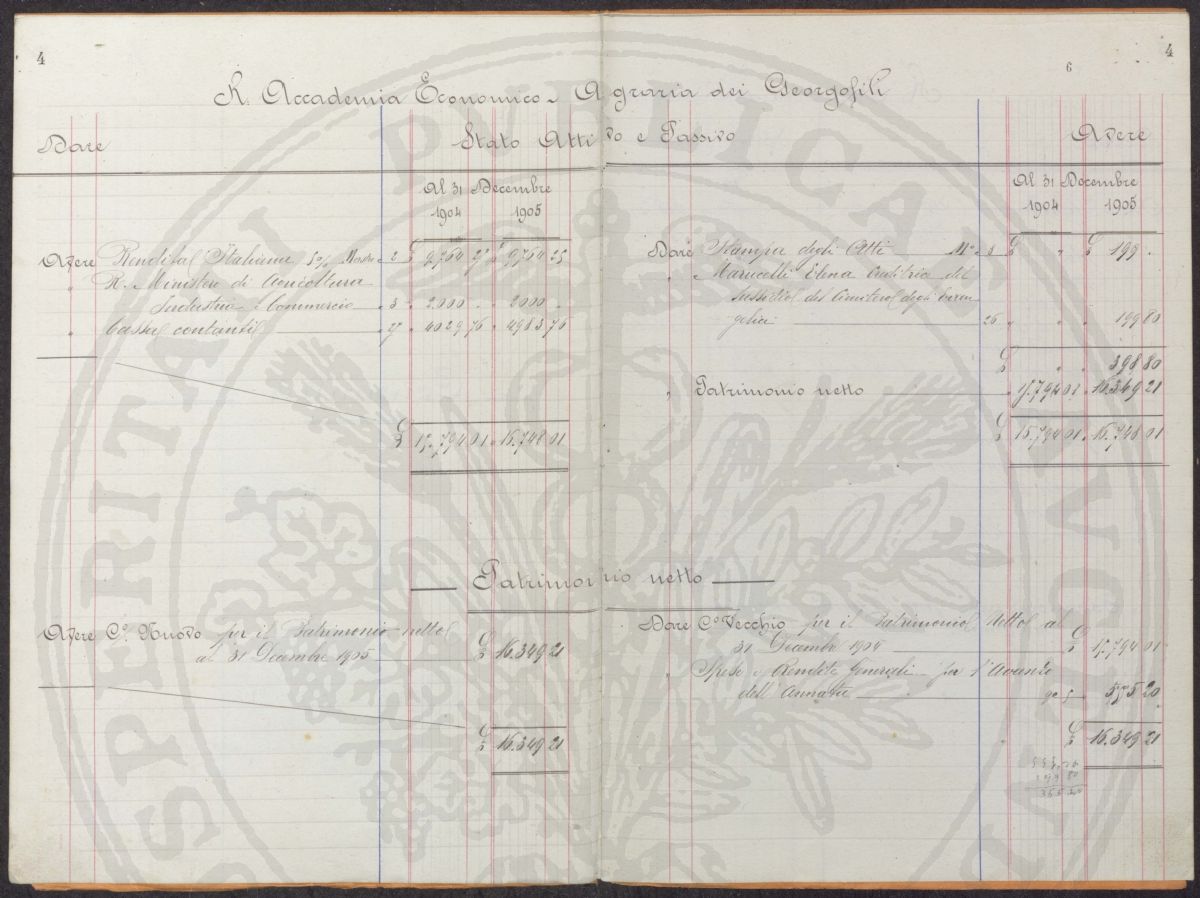 4
4
6
R. Accademia Economico-Agraria dei Georgofili
Dare Stato Attivo e Passivo Avere
Al 31 Decembre
1904 1905
Avere Rendita Italiana 5% Mastro 2 £ 9,764 25 £ 9,764 25
" R. Ministero di Agricoltura
Industria e Commercio 3 " 2000 " " 2000 "
" Cassa contanti " 27 " 4029 76 " 4983 76
£ 15,794 01 " 16.748 01
Al 31 Decembre
1904 1905
Dare Stampa degli Atti M° 8 £ " £ 199 .
" Marucelli Elena del
sussidio del degli
26 " " " 199 80
£ " " 398 80
" Patrimonio netto " 15.794 01 " 16.349 21
£ 15.794 01 " 16.748 01
Patrimonio netto
Avere C.° Nuovo per il Patrimonio netto
al 31 Dicembre 1905 £ 16.349 21
£ 16.349 21
Dare C.° Vecchio per il Patrimonio Netto al
31 Dicembre 1904 £ 15.794 01
" Spese e Rendite Generali per l'Avanzo
dell'Annata 555 20
£ 16.349 21